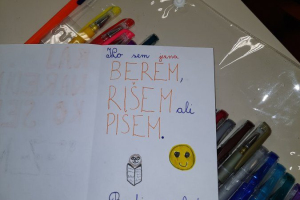 Ko sem sama
BEREM,
RIŠEM ali
PIŠEM.